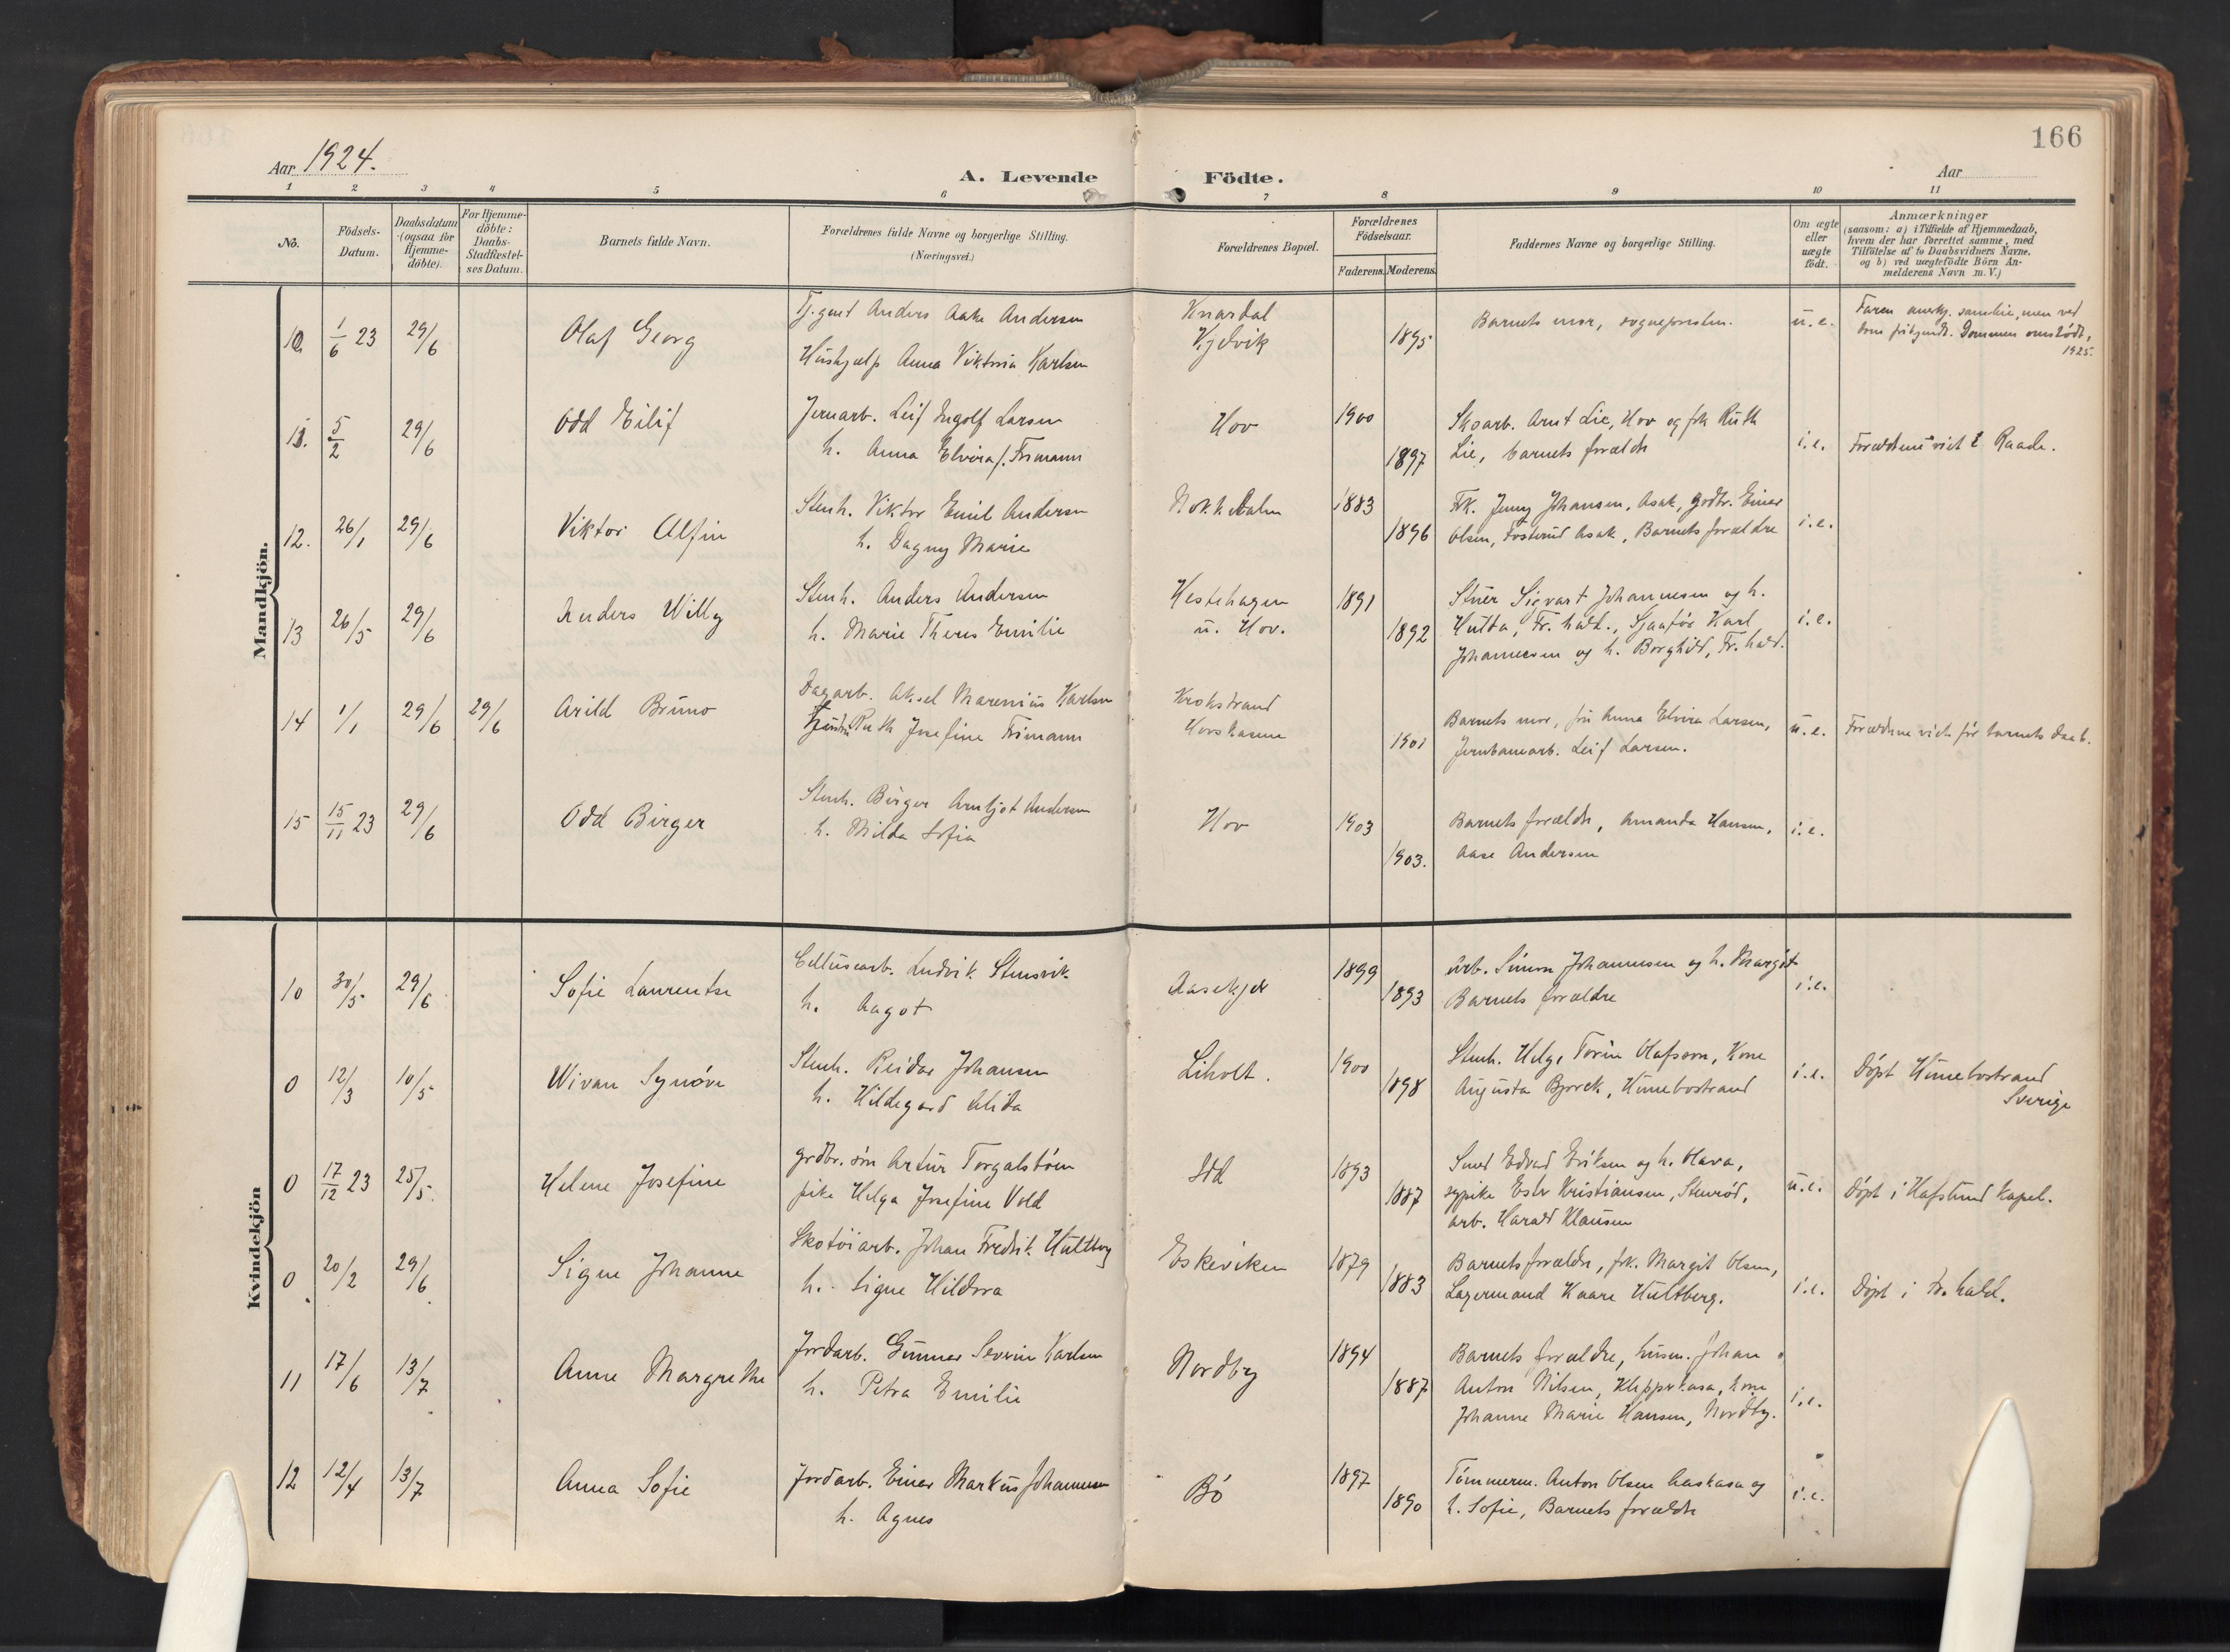 166
Aar 1924.
A. Levende Födte.
Aar
1 2 3 4 5 6 7 8 9 10 11
No.
Födsels-
Datum.
Daabsdatum
(ogsaa for
Hjemme-
döbte).
For Hjemme-
döbte:
Daabs-
Stadfæstel-
ses Datum.
Barnets fulde Navn.
Forældrenes fulde Navne og borgerlige Stilling.
(Næringsvei.)
Forældrenes Bopæl.
Forældrenes
Födselsaar.
Faderens. Moderens.
Faddernes Navne og borgerlige Stilling.
Om ægte
eller
uægte
födt.
Anmærkninger
(saasom: a) i Tilfælde af Hjemmedaab,
hvem der har forrettet samme, med
Tilföielse af to Daabsvidners Navne,
og b) ved uægtefödte Börn An-
melderens Navn m. V.)
Mandkjön.
10 1/6 23 29/6 Olaf Georg
Anders Aake Andersen
Hushjælp Anna Viktoria Karlsen
Knardal
Kjølvik
1895
Barnets mor, sognepresten.
u.e.
Faren samleie, men ved
dom frikjendt. Dommen omstødt,
1925.
11. 5/2 29/6 Odd Eilif
Jernarb. Leif Ingolf Larsen
h. Anna Elvira f. Frimann
Hov
1900
1897
Skoarb. Arnt Lie, Hov og frk Ruth
Lie, barnets forældre
i.e.
Forældrene viet i Raade.
12. 26/1 29/6 Viktor Alfin
Stenh. Viktor Emil Andersen
h. Dagny Marie
1883
1896
Frk. Jenny Johansen, Asak, grdbr. Einar
Olsen, Fosterud Asak, Barnets forældre
i.e.
13 26/5 29/6 Anders Willy
Stenh. Anders Andersen
h. Marie Theres Emilie
Hestehagen
u. Hov.
1891
1892
Sigvart Johannesen og h.
Hulda, Fr.hald., Karl
Johannesen og h. Borghild, Fr.hald.
i.e.
14 1/1 29/6 29/6 Arild Bruno
Dagarb. Aksel Marenius Karlsen
Ruth Josefine Frimann
Krokstrand
Hovskasene
1901
Barnets mor, fru Anna Elvira Larsen,
Jernbanearb. Leif Larsen.
u.e.
Forældrene viet før barnets daab.
15 15/11 23 29/6 Odd Birger
Stenh. Birger Arnljot Andersen
h. Milda Sofia
Hov
1903
1903.
Barnets forældre, Amanda Hansen,
Aase Andersen
i.e.
Kvindekjön
10 30/5 29/6 Sofie Laurentse
Cellusearb. Ludvik Stensvik
h. Aagot
1899
1893
arb. Simon Johannesen og h. Margit
Barnets forældre
i.e.
0 12/3 10/5 Wivan Synøve
Stenh. Reidar Johansen
h. Hildegard Alida
Liholt.
1900
1898
Stenh. Helge Torin Olafsson, Kone
Augusta Bjørck, Hunebostrand
i.e.
Døpt Hunebostrand
Sverige
0 17/12 23 25/5 Helene Josefine
grdbr. søn Artur Torgalsbøen
pike Helga Josefine Vold
Idd
1893
1887
Smed Edvard Eriksen og h. Olava,
sypike Ester Kristiansen, Stenrød,
arb. Harald Klausen
u.e.
Døpt i Hafslund Kapel.
0 20/2 29/6 Signe Johanne
Skotøiarb. Johan Fredrik Hultberg
h. Signe Hildora
Eskeviken
1879
1883
Barnets forældre, frk. Margit Olsen,
Lagermand Kaare Hultberg.
i.e.
Døpt i Fr.hald.
11 17/6 13/7 Anne Margrethe
Jordarb. Gunnar Severin Karlsen
h. Petra Emilie
Nordby
1894
1887
Barnets forældre, husm. Johan
Anton Nilsen, Klepperkasa, kone
Johanne Marie Hansen, Nordby.
i.e.
12 12/4 13/7 Anna Sofie
Jordarb. Einar Markus Johannesen
h. Agnes
Bø
1897
1890
Tømmerm. Anton Olsen og
h. Sofie, Barnets forældre
i.e.